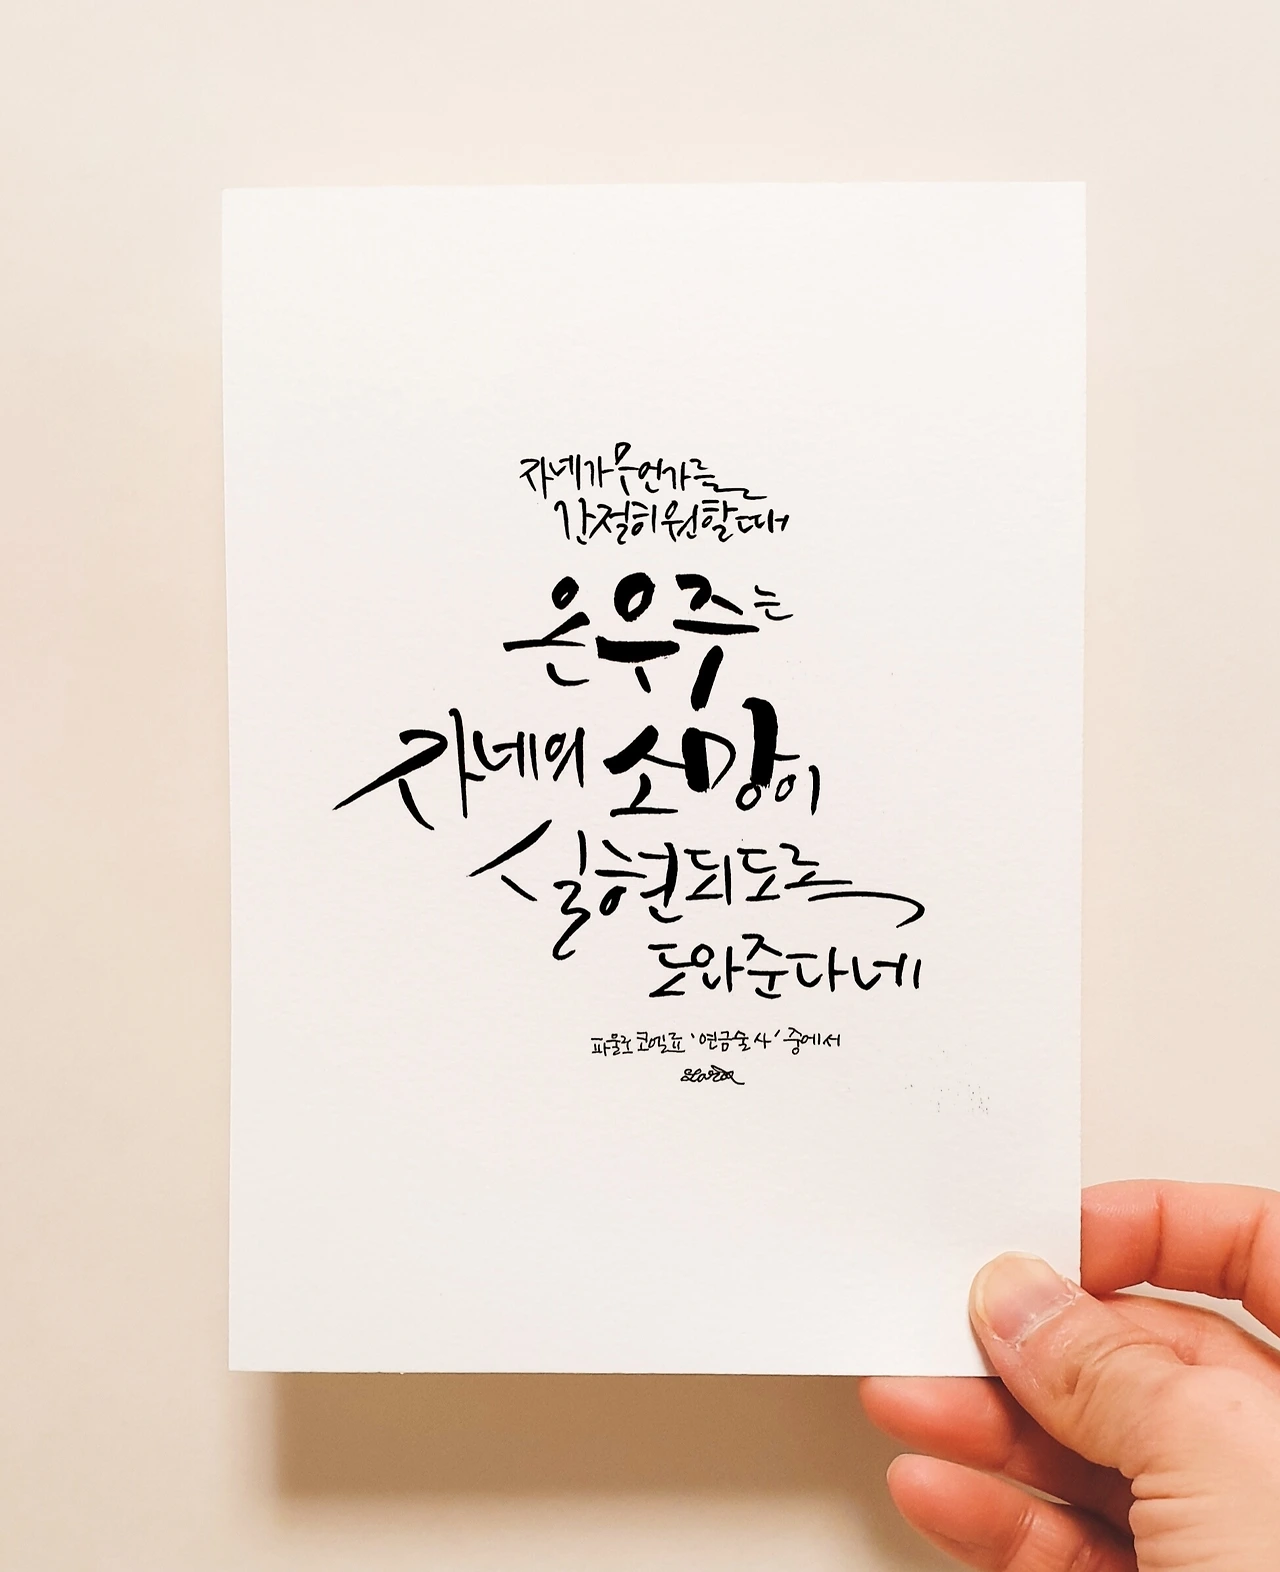 자네가 무언가를
간절히 원할 때
온 우주는
자네의 소망이
실현되도록
도와준다네
파울로 코엘료 '연금술사' 중에서